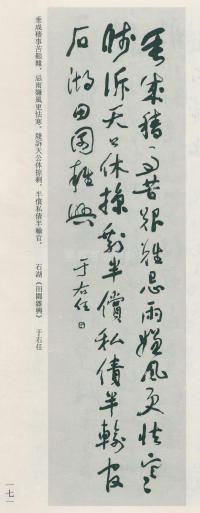 垂成穡事苦艱難忌雨嫌風更怯寒
牋訴天公休掠剩半償私債半輸官
石湖田園雜興
于右任
垂成穡事苦艱難,忌雨嫌風更怯寒,牋訴天公休掠剩,半償私債半輸官。 石湖《田園雜興》 于右任
一七一